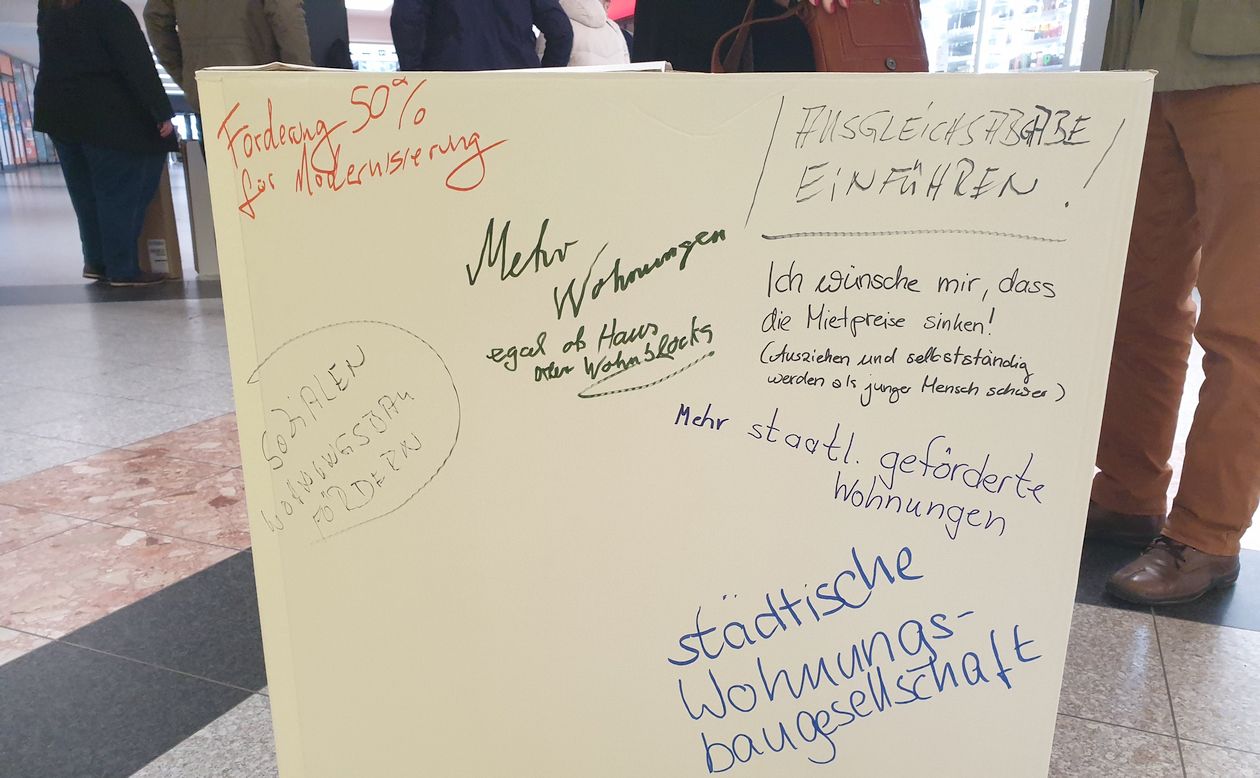 Förderung 50%
für Modernisierung
AUSGLEICHSABGABE
EINFÜHREN!
Mehr
Wohnungen
egal ob Haus
oder Wohnblocks
Ich wünsche mir, dass
die Mietpreise sinken!
(Ausziehen und selbstständig
werden als junger Mensch schwer)
SOZIALEN
WOHNUNGSBAU
FÖRDERN
Mehr staatl. geförderte
Wohnungen
städtische
Wohnungs-
baugesellschaft